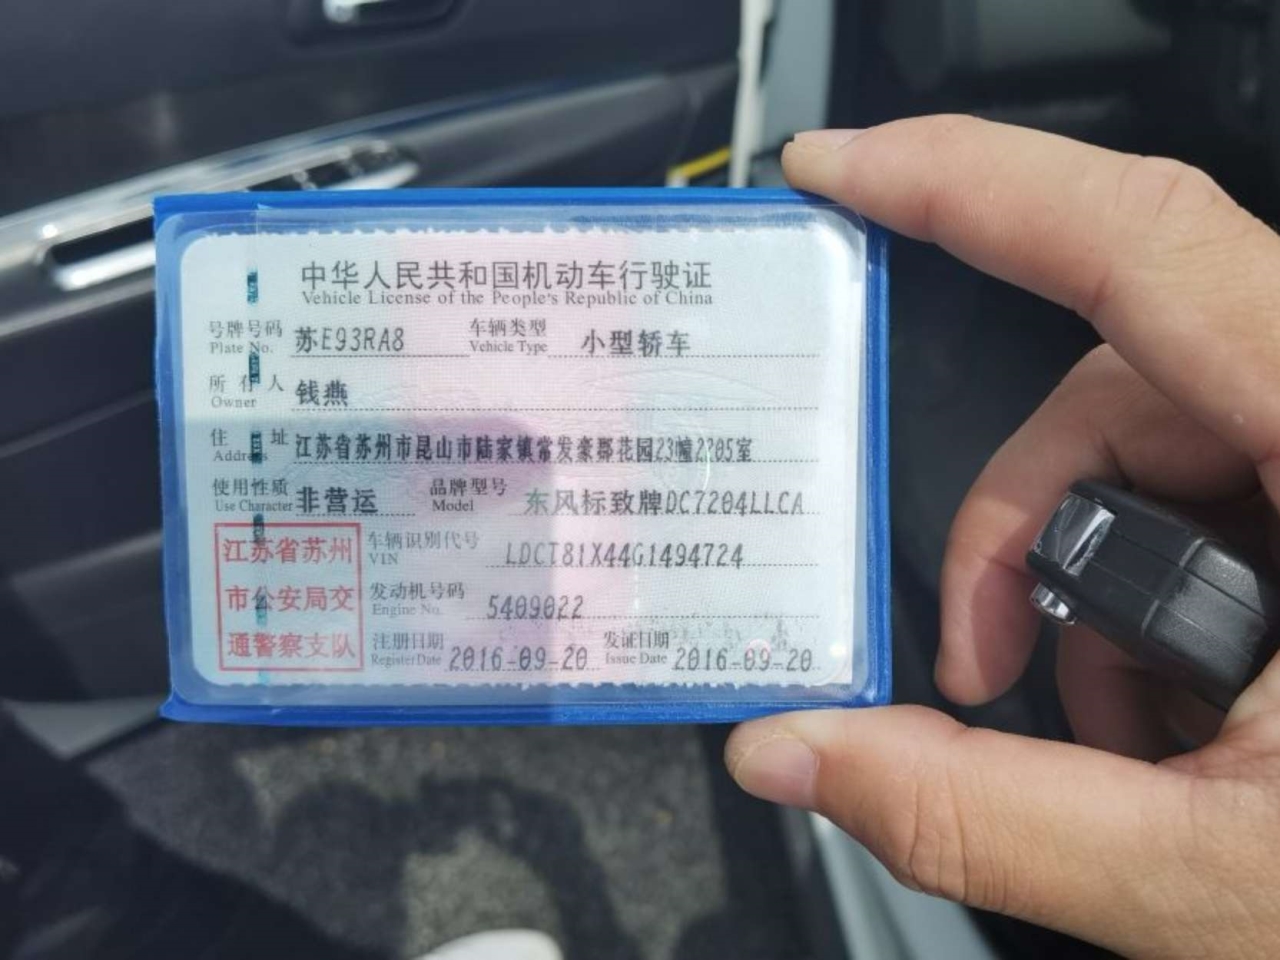 中华人民共和国机动车行驶证
Vehicle License of the People's Republic of China
号牌号码 苏E93RA8 车辆类型 小型轿车
Plate No. Vehicle Type
所有人 钱燕
Owner
住址 江苏省苏州市昆山市陆家镇常发豪郡花园23幢2205室
Address
使用性质 非营运 品牌型号 东风标致牌DC7204LLCA
Use Character Model
江苏省苏州 车辆识别代号 LDCT81X44G1494724
VIN
市公安局交 发动机号码 5409022
Engine No.
通警察支队 注册日期 2016-09-20 发证日期 2016-09-20
Register Date Issue Date